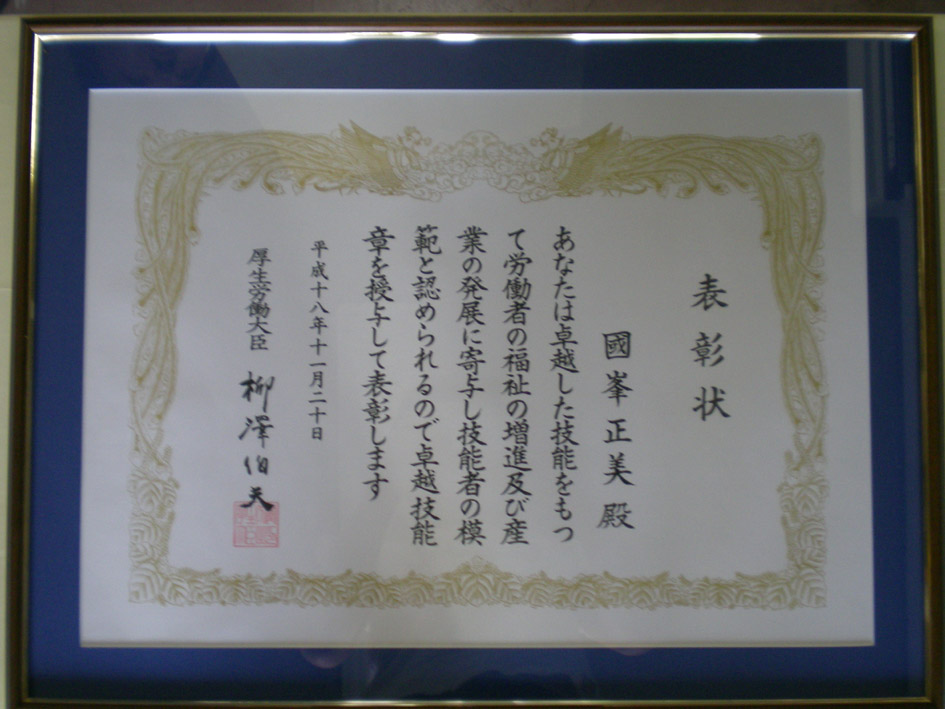 表彰状
國峯正美殿
あなたは卓越した技能をもつ
て労働者の福祉の増進及び産
業の発展に寄与し技能者の模
範と認められるので卓越技能
章を授与して表彰します
平成十八年十一月二十日
厚生労働大臣 柳澤伯夫